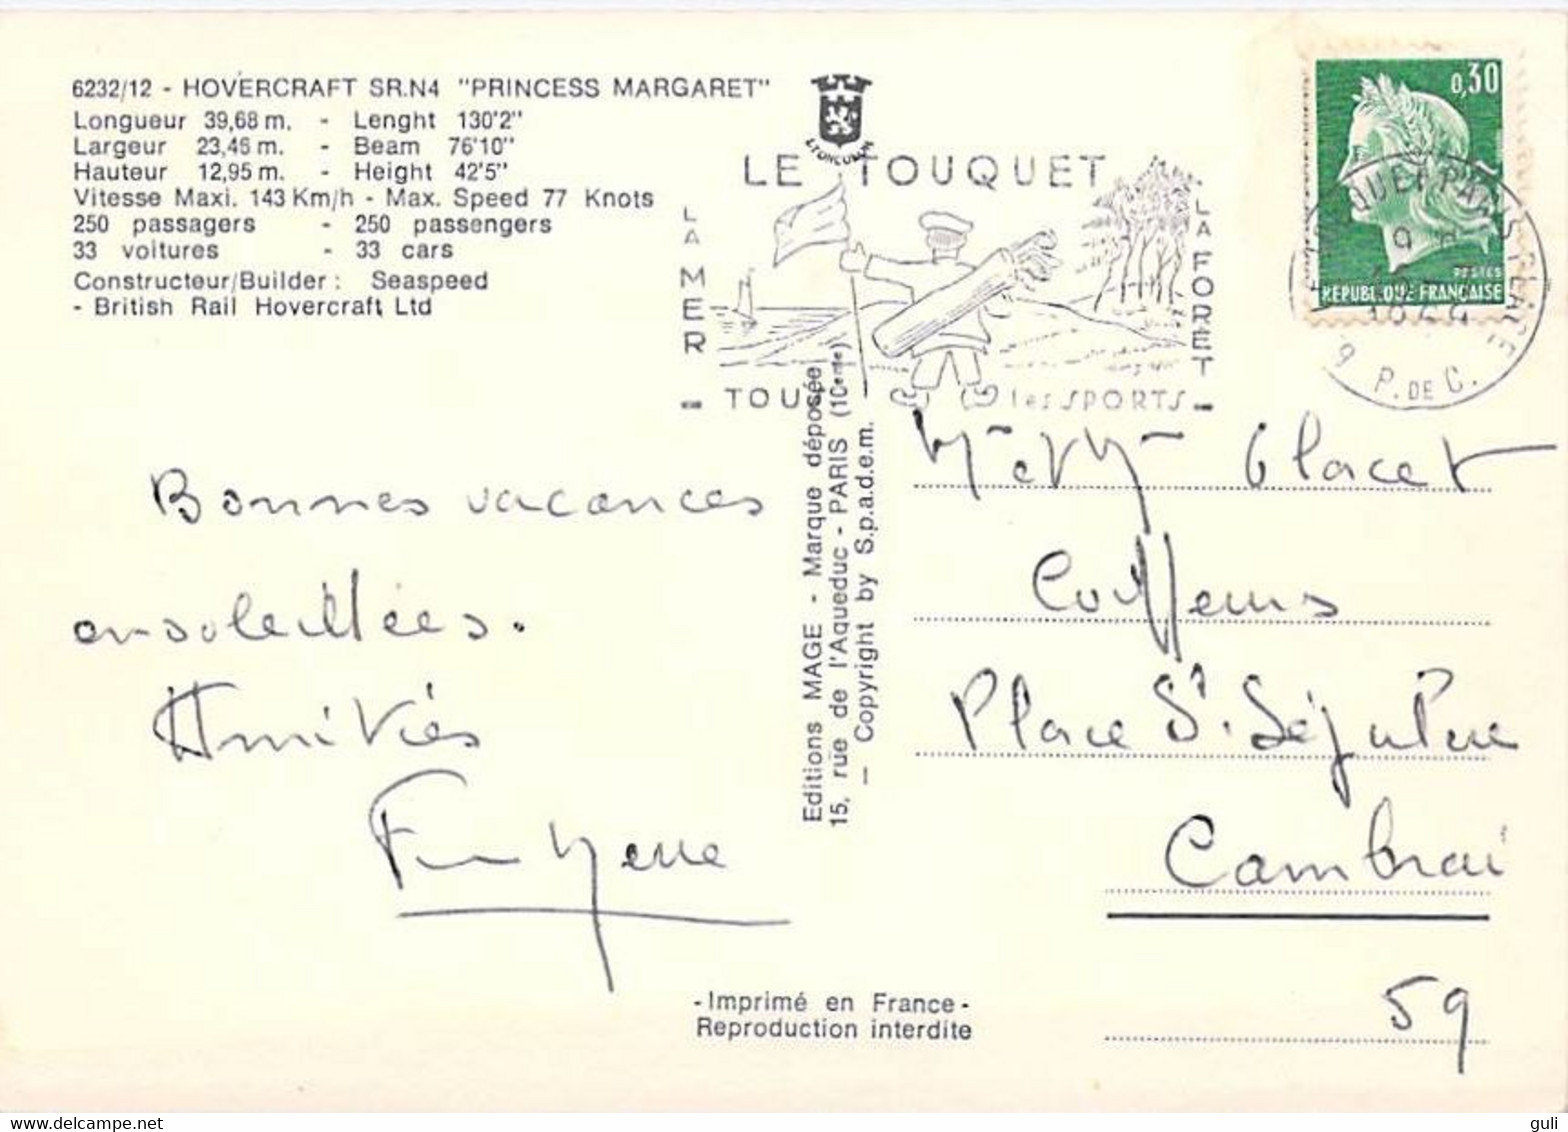 6232/12 - HOVERCRAFT SR.N4 "PRINCESS MARGARET"
Longueur 39,68 m. - Lenght 130'2"
Largeur 23,46 m. - Beam 76'10"
Hauteur 12,95 m. - Height 42'5"
Vitesse Maxi. 143 Km/h - Max. Speed 77 Knots
250 passagers - 250 passengers
33 voitures - 33 cars
Constructeur/Builder : Seaspeed
- British Rail Hovercraft Ltd
LE TOUQUET
LA MER
LA FORET
les SPORTS
0,30
POSTES
REPUBLIQUE FRANÇAISE
PARIS-PLAGE
9 H
1969
P. DE C.
Bonnes vacances
ensoleillées.
Amitiés
Editions MAGE - Marque déposée
15, rue de l'Aqueduc - PARIS (10eme)
- Copyright by S.p.a.d.e.m.
Mr et Mme Glacet
Coiffeurs
Place St. Sépulcre
Cambrai
59
- Imprimé en France -
Reproduction interdite
guli